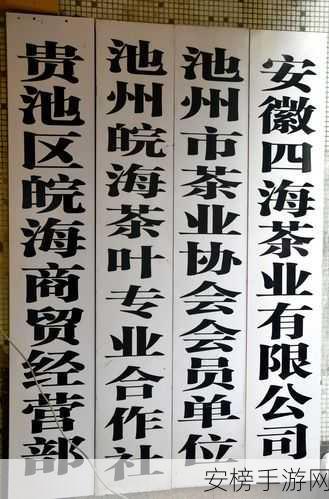 安徽四海茶业有限公司
池州市茶业协会会员单位
池州皖海茶叶专业合作社
贵池区皖海商贸经营部
安榜手游网